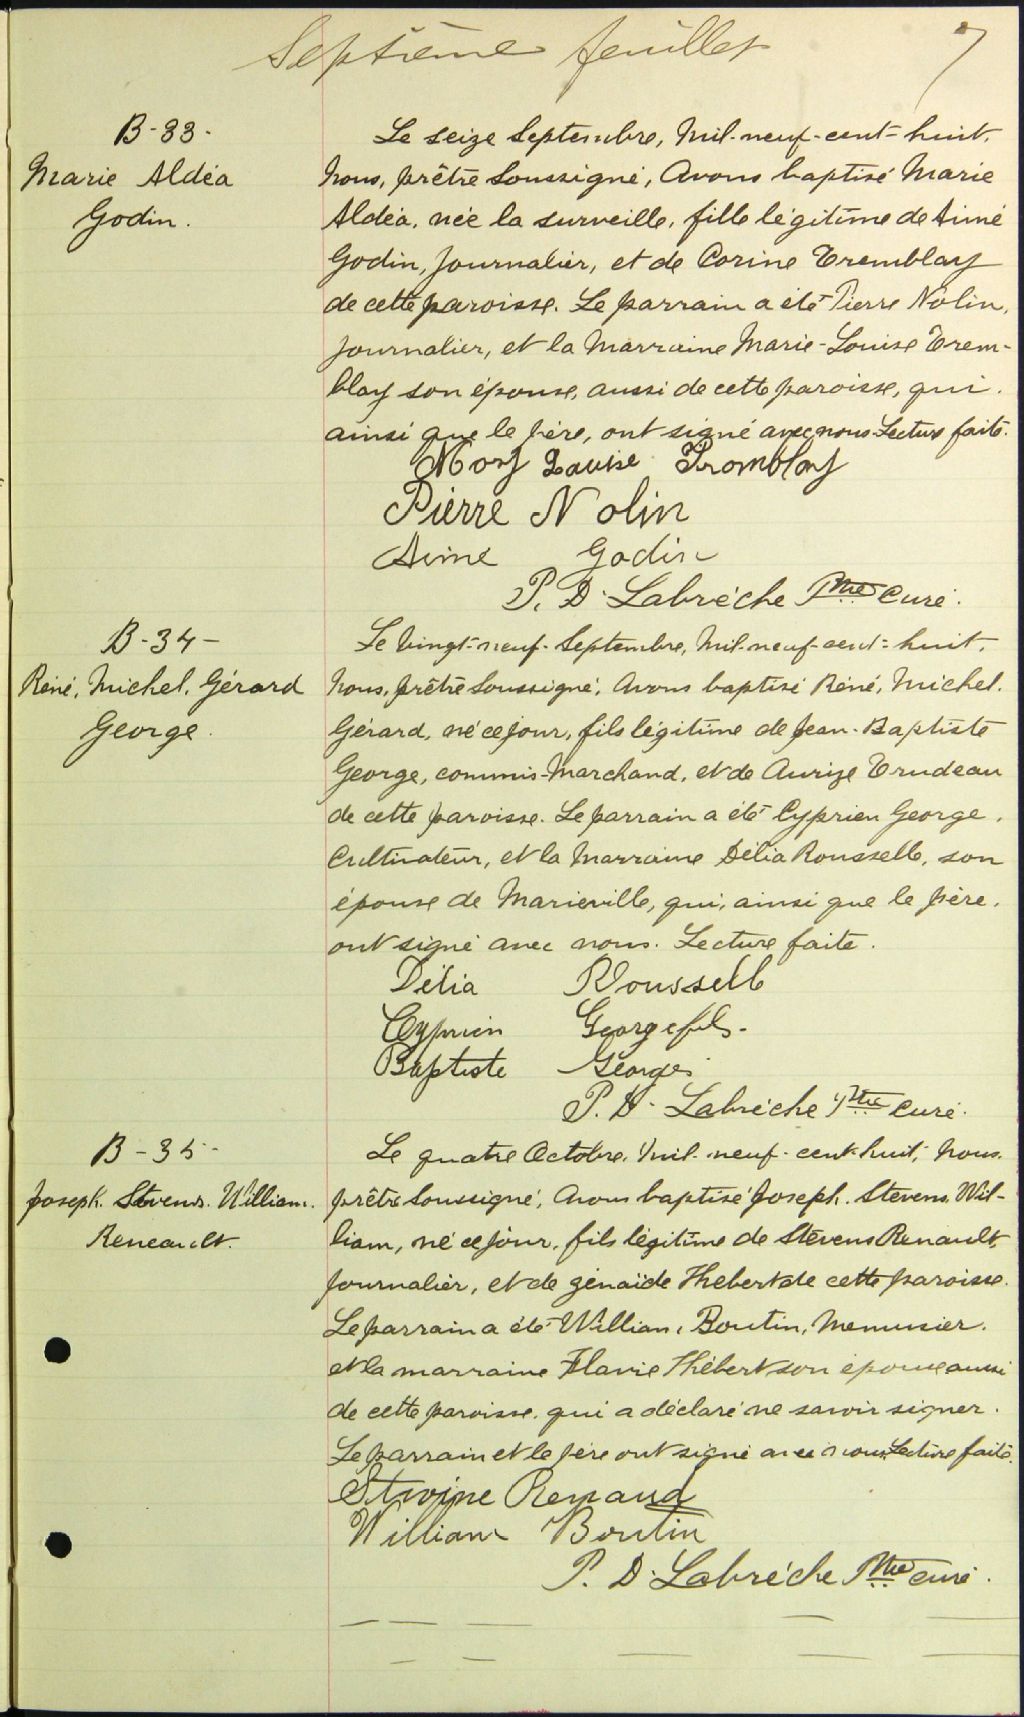 Septième feuillet 7
B-33-
Marie Aldéa
Godin.
Le seize Septembre, Mil-neuf-cent-huit.
Nous, prêtre Soussigné, Avons baptisé Marie
Aldéa, née la surveille, fille légitime de Aimé
Godin, Journalier, et de Corine Tremblay
de cette paroisse. Le parrain a été Pierre Nolin,
Journalier, et la Marraine Marie-Louise Trem-
blay son épouse, aussi de cette paroisse, qui
ainsi que le père, ont signé avec nous. Lecture faite.
Mary Louise Tromblay
Pierre Nolin
Aimé Godin
P. D. Labrèche Ptre curé.
B-34-
René, Michel, Gérard
George.
Le Vingt-neuf-Septembre, Mil-neuf-cent-huit,
Nous, prêtre Soussigné, Avons baptisé René, Michel,
Gérard, né ce jour, fils légitime de Jean-Baptiste
George, commis-Marchand, et de Aurize Trudeau
de cette paroisse. Le parrain a été Cyprien George,
Cultivateur, et la Marraine Délia Rousselle, son
épouse de Marieville, qui, ainsi que le père,
ont signé avec nous. Lecture faite.
Délia Rousselle
Cyprien George fils.
Baptiste George
P. D. Labrèche Ptre curé.
B-35-
Joseph. Stevens. William.
Reneault.
Le quatre Octobre, Mil-neuf-cent-huit, Nous
prêtre Soussigné, Avons baptisé Joseph. Stevens. Wil-
liam, né ce jour, fils légitime de Stevens Renault,
Journalier, et de Zénaïde Thebert de cette paroisse.
Le parrain a été William Boutin, Menuisier,
et la marraine Flavie Thébert son épouse aussi
de cette paroisse, qui a déclaré ne savoir signer.
Le parrain et le père ont signé avec nous. Lecture faite.
Renaud
William Boutin
P. D. Labrèche Ptre curé.